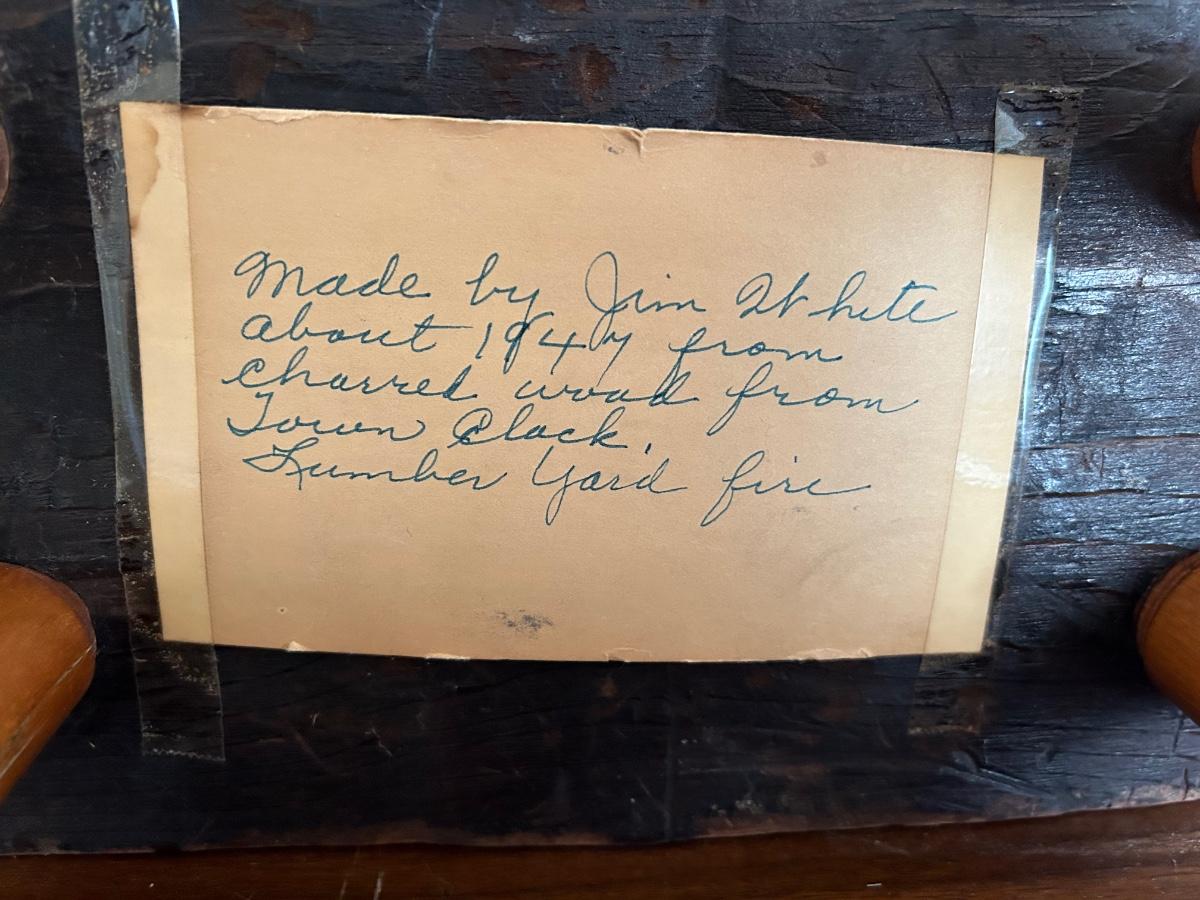 Made by Jim White
about 1947 from
charred wood from
Town Clock,
Lumber Yard fire